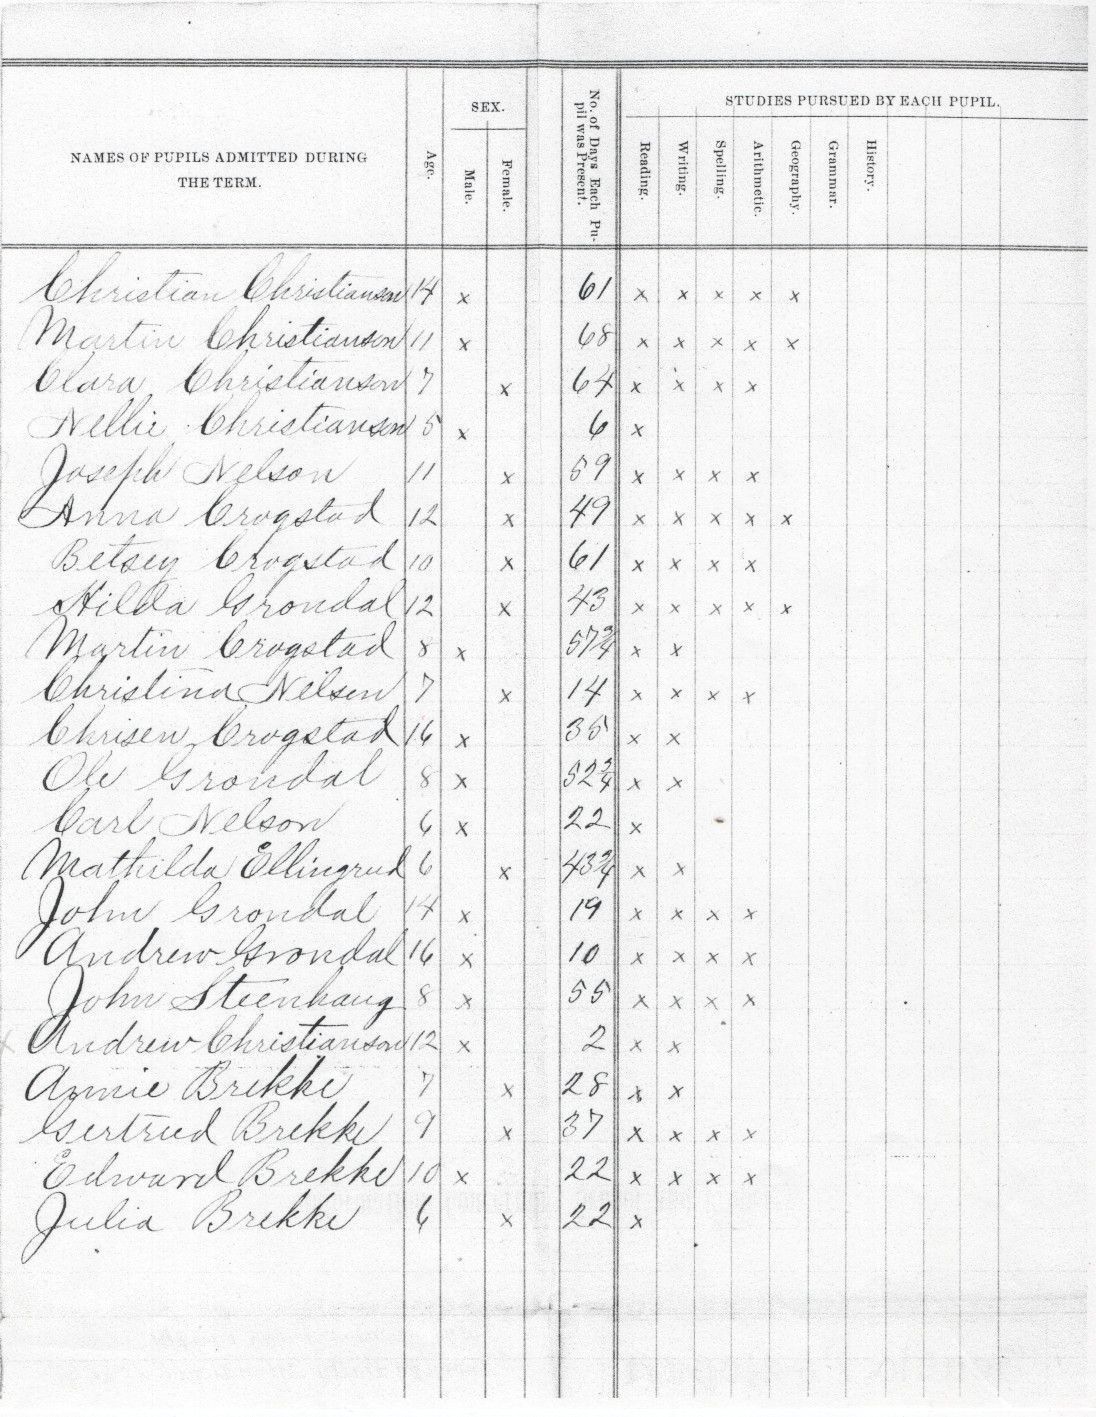 NAMES OF PUPILS ADMITTED DURING THE TERM. Age. SEX. Male. Female. No. of Days Each Pupil was Present. STUDIES PURSUED BY EACH PUPIL. Reading. Writing. Spelling. Arithmetic. Geography. Grammar. History.
Christian Christianson 14 x 61 x x x x x
Martin Christianson 11 x 68 x x x x x
Clara Christianson 7 x 64 x x x x
Nellie Christianson 5 x 6 x
Joseph Nelson 11 x 59 x x x x
Anna Crogstad 12 x 49 x x x x x
Betsey Crogstad 10 x 61 x x x x
Hilda Grondal 12 x 43 x x x x x
Martin Crogstad 8 x 57 3/4 x x
Christina Nelsen 7 x 14 x x x x
Chrisen Crogstad 16 x 35 x x
Ole Grondal 8 x 52 3/4 x x
Carl Nelson 6 x 22 x
Mathilda Ellingrud 6 x 43 3/4 x x
John Grondal 14 x 19 x x x x
Andrew Grondal 16 x 10 x x x x
John Steenhaug 8 x 55 x x x x
Andrew Christianson 12 x 2 x x
Annie Brekke 7 x 28 x x
Gertrud Brekke 9 x 37 x x x x
Edward Brekke 10 x 22 x x x x
Julia Brekke 6 x 22 x